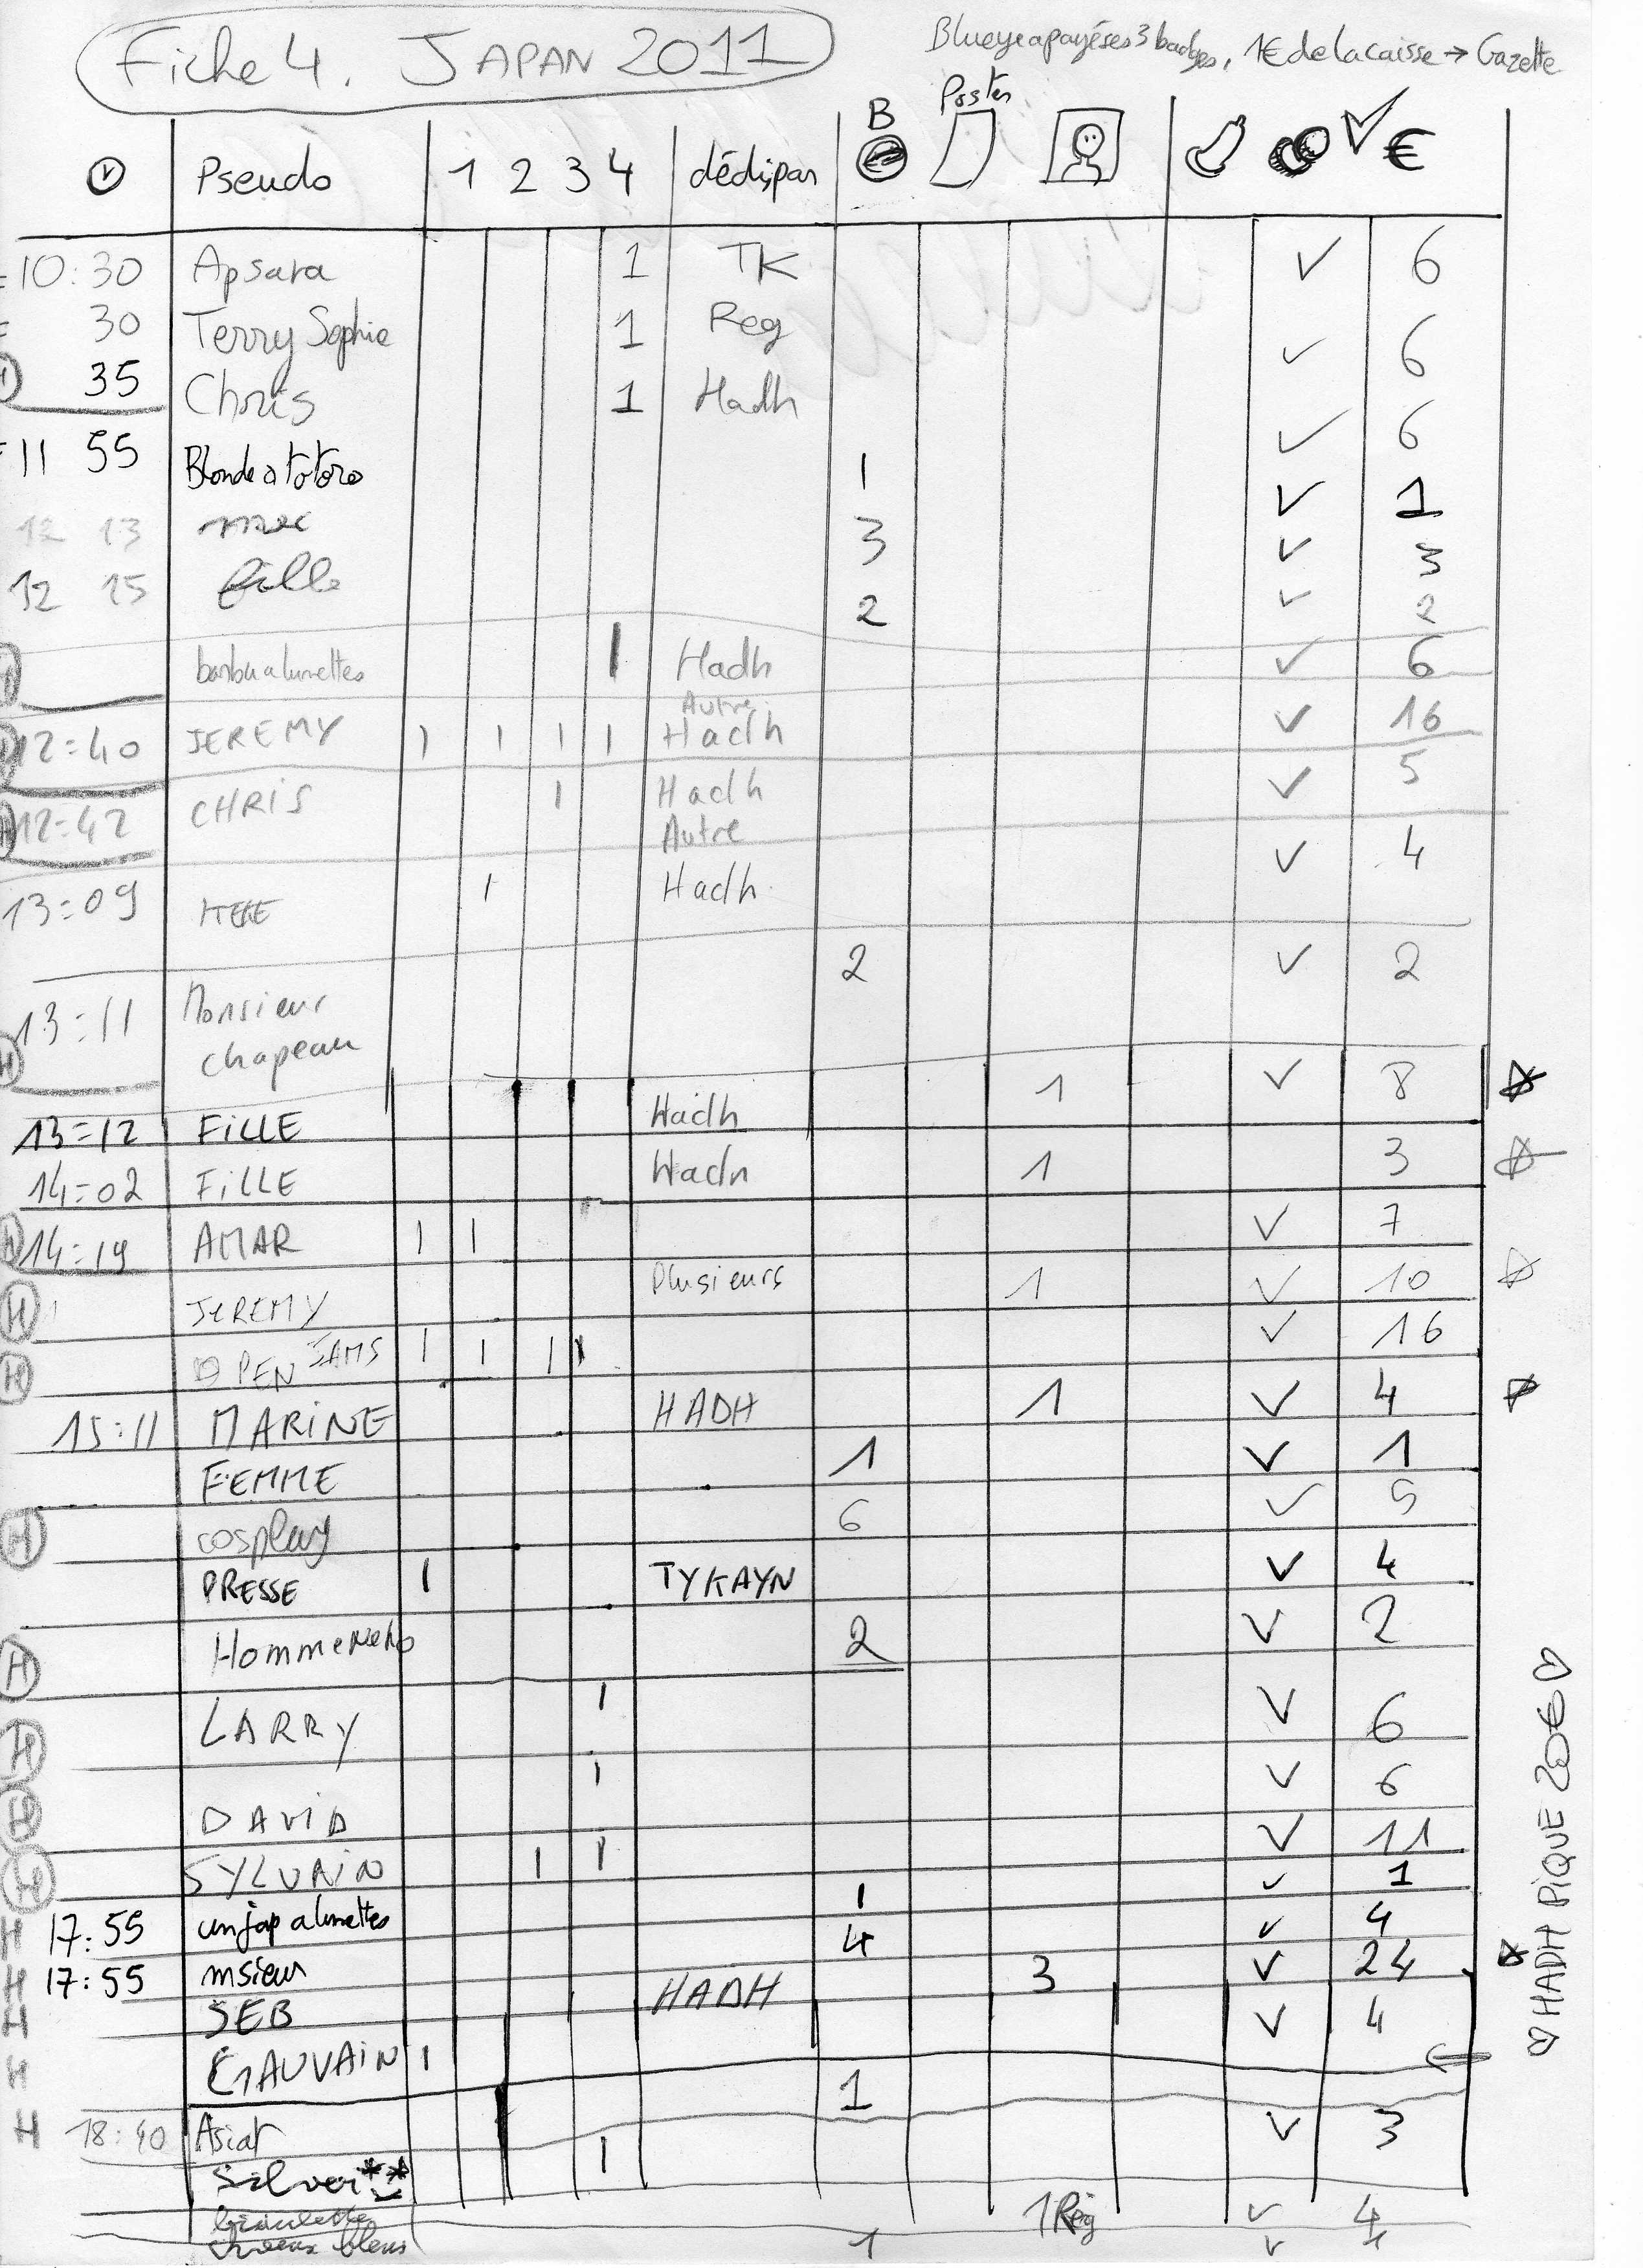 Fiche 4. JAPAN 2011
Blueye a payé ses 3 badges, 1€ de la caisse → Gazette
Pseudo 1 2 3 4 dédi par B Poster €
10:30 Apsara 1 TK ✓ 6
30 Terry Sophie 1 Reg ✓ 6
35 Chris 1 Hadh ✓ 6
11 55 Blonde a totoro 1 ✓ 1
12 13 mec 3 ✓ 3
12 15 fille 2 ✓ 2
barbu a lunettes 1 Hadh ✓ 6
12:40 JEREMY 1 1 1 1 Autre Hadh ✓ 16
12:42 CHRIS 1 Hadh Autre ✓ 5
13:09 1 Hadh ✓ 4
13:11 Monsieur chapeau 2 ✓ 2
H
13:12 FILLE Hadh 1 ✓ 8
14:02 FILLE Hadh 1 3
14:19 AMAR 1 1 ✓ 7
H JEREMY Plusieurs 1 ✓ 10
H OPEN JAMS 1 1 1 1 ✓ 16
15:11 MARINE HADH 1 ✓ 4
FEMME 1 ✓ 1
H cosplay 6 ✓ 5
PRESSE 1 TYKAYN ✓ 4
H Homme Neko 2 ✓ 2
H LARRY 1 ✓ 6
H DAVID 1 ✓ 6
H SYLVAIN 1 1 ✓ 11
H 17:55 un jap a lunettes 1 ✓ 1
H 17:55 msieur 4 ✓ 4
H SEB HADH 3 ✓ 24
H GAUVAIN 1 ✓ 4
H 18:40 Asiat 1
Silver 1 ✓ 3
1 Rég ✓ 4
cheveux bleus 1 ✓
♡ HADH PIQUE 20€ ♡